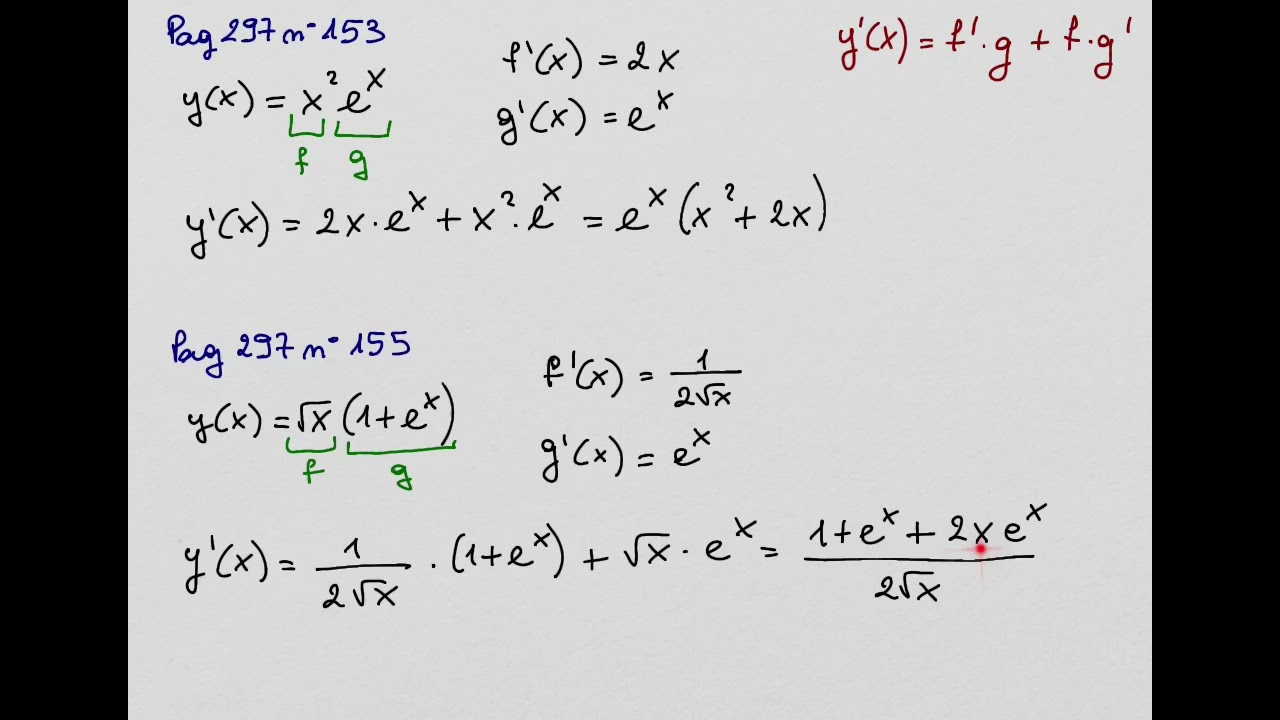 Pag 297 n° 153
y'(x) = f'·g + f·g'
y(x) = x²eˣ
f g
f'(x) = 2x
g'(x) = eˣ
y'(x) = 2x·eˣ + x²·eˣ = eˣ(x² + 2x)
Pag 297 n° 155
y(x) = √x (1+eˣ)
f g
f'(x) = 1/(2√x)
g'(x) = eˣ
y'(x) = 1/(2√x) · (1+eˣ) + √x · eˣ = (1+eˣ+2xeˣ)/(2√x)